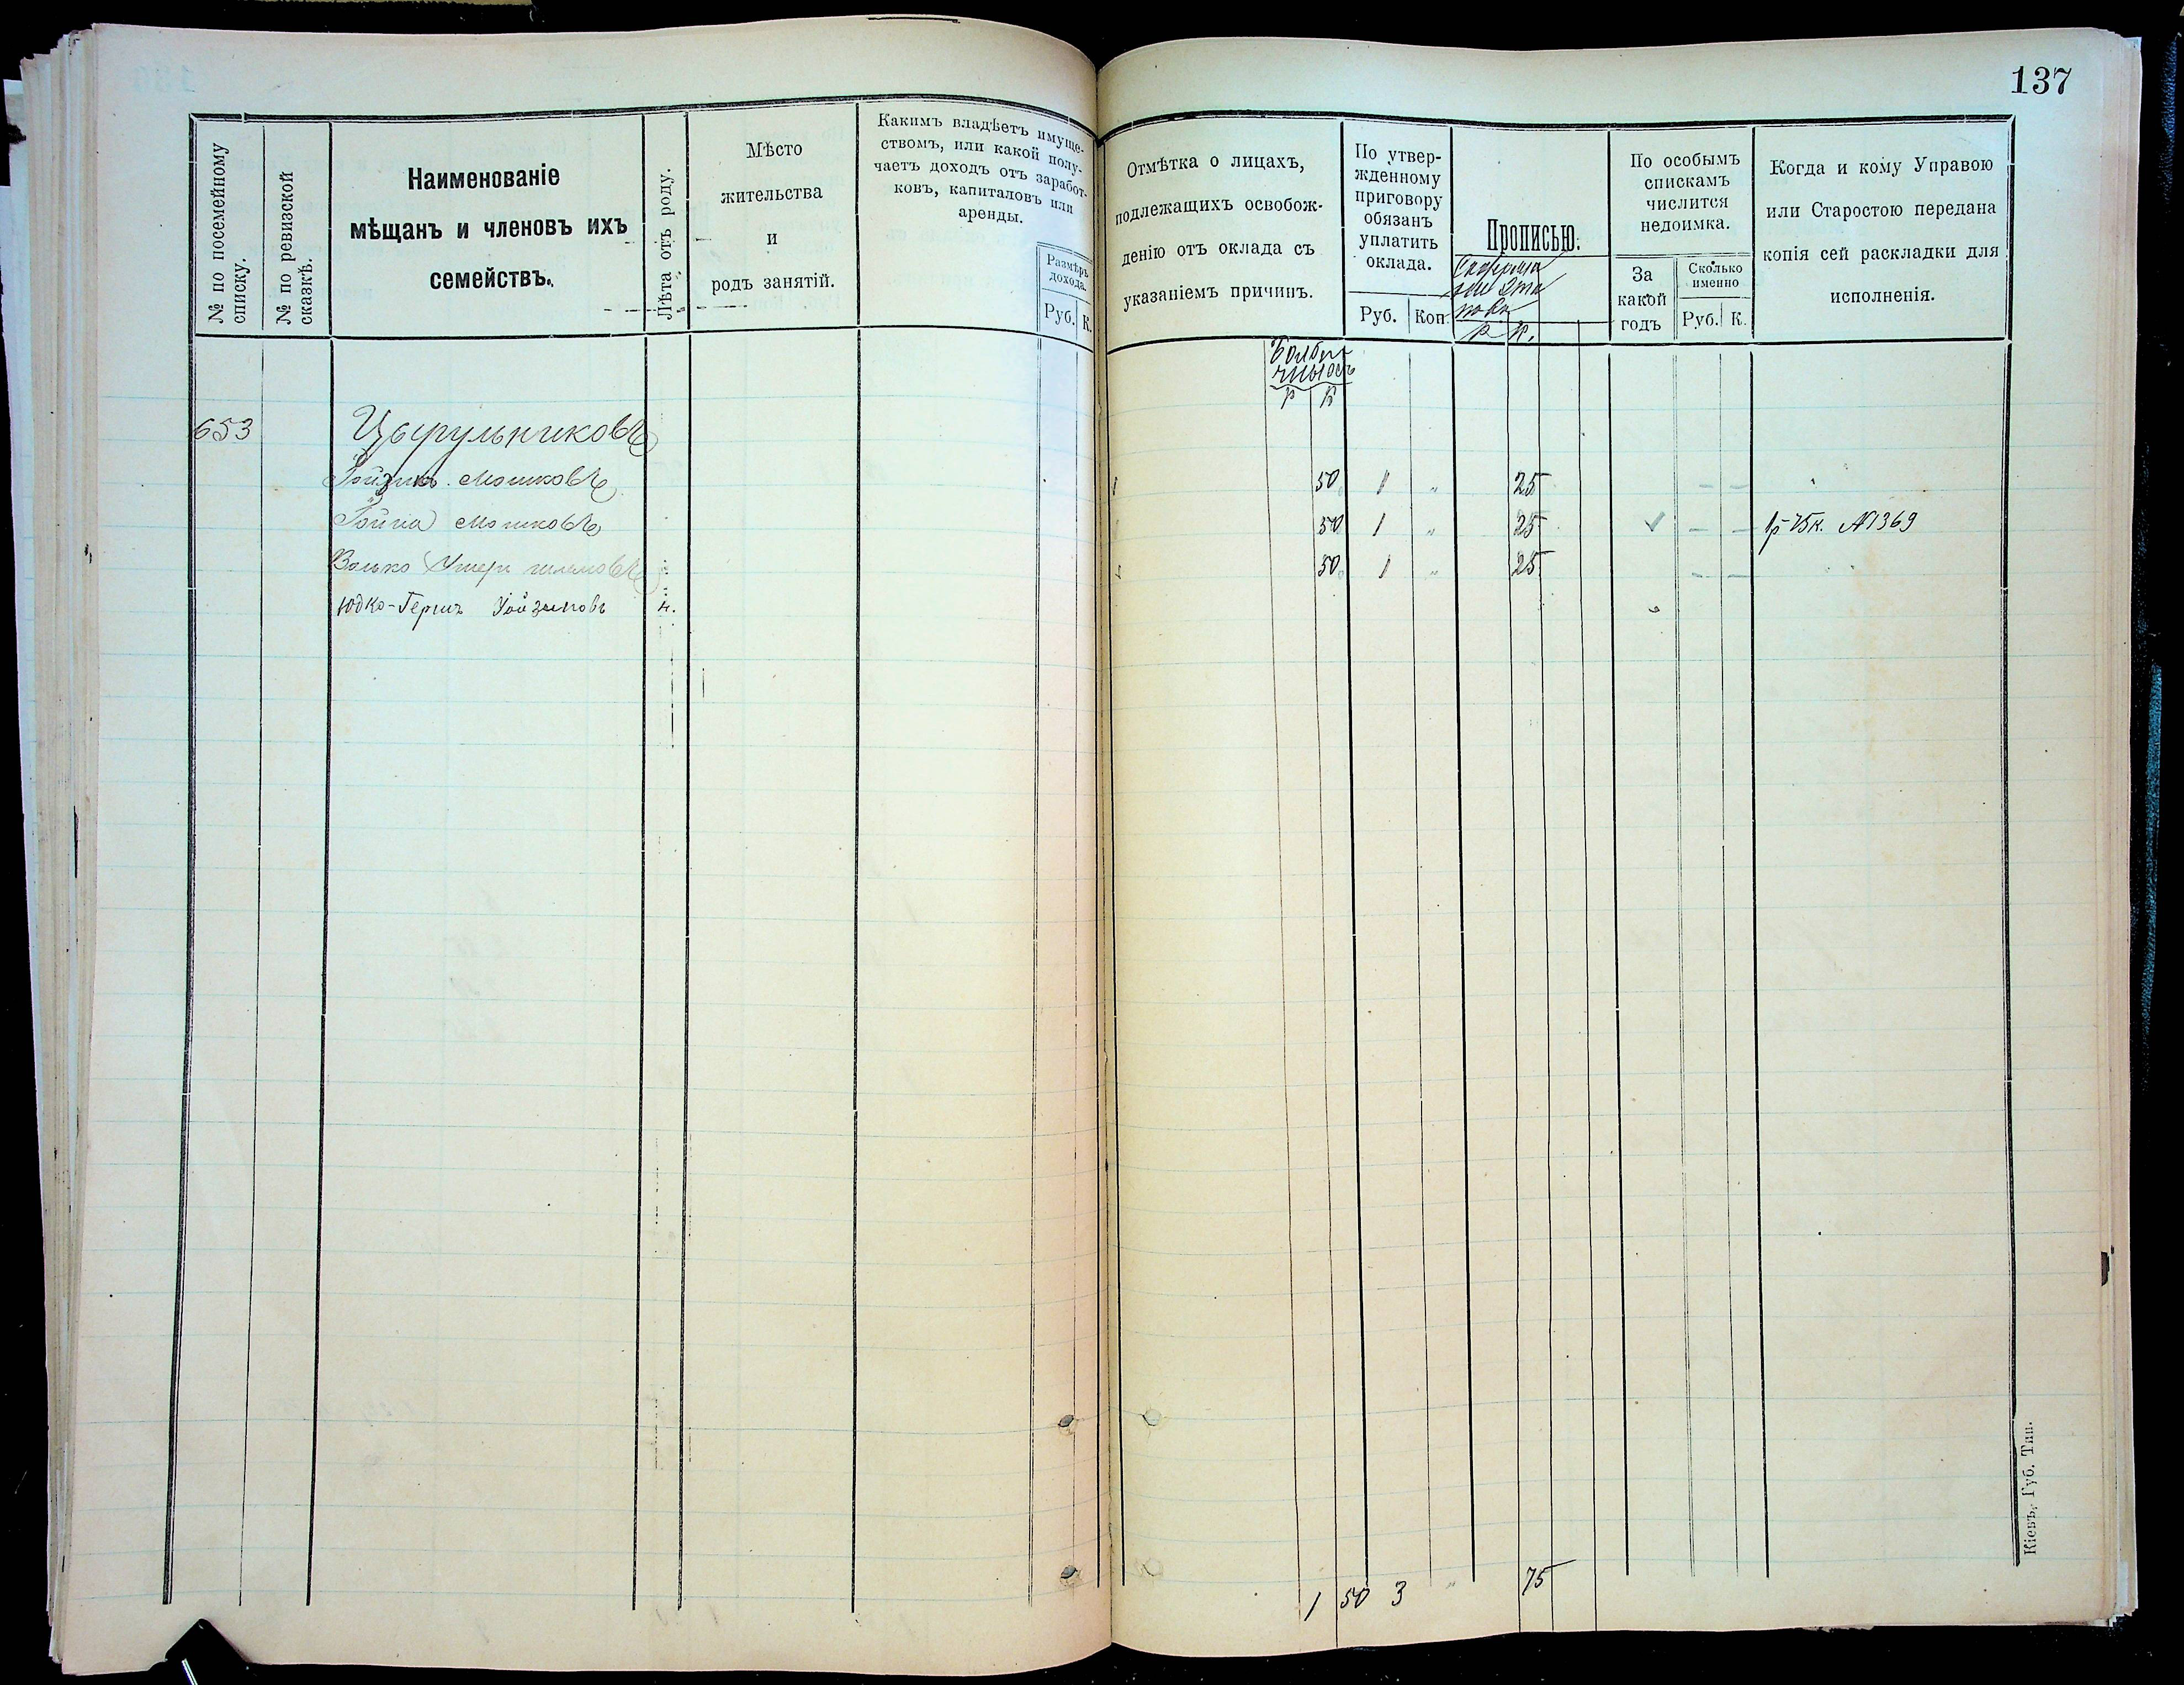 137
№ по посемейному
списку.
№ по ревизской
сказкѣ.
Наименованіе
мѣщанъ и членовъ ихъ
семействъ.
Лѣта отъ роду.
Мѣсто
жительства
и
родъ занятій.
Какимъ владѣетъ имуще-
ствомъ, или какой полу-
чаетъ доходъ отъ заработ-
ковъ, капиталовъ или
аренды.
Размѣръ
дохода.
Руб. К.
Отмѣтка о лицахъ,
подлежащихъ освобож-
денію отъ оклада съ
указаніемъ причинъ.
По утвер-
жденному
приговору
обязанъ
уплатить
оклада.
Руб. Коп.
Прописью.
р. к.
По особымъ
спискамъ
числится
недоимка.
За
какой
годъ
Сколько
именно
Руб. К.
Когда и кому Управою
или Старостою передана
копія сей раскладки для
исполненія.
р к
653 Цырульниковъ
Мошковъ 50 1 " 25
Мошковъ 50 1 " 25 1р 75к. №1369
Волько 50 1 " 25
Юдко-Гершъ Іойзиповъ н.
1 50 3 " 75
Кіевъ, Губ. Тип.